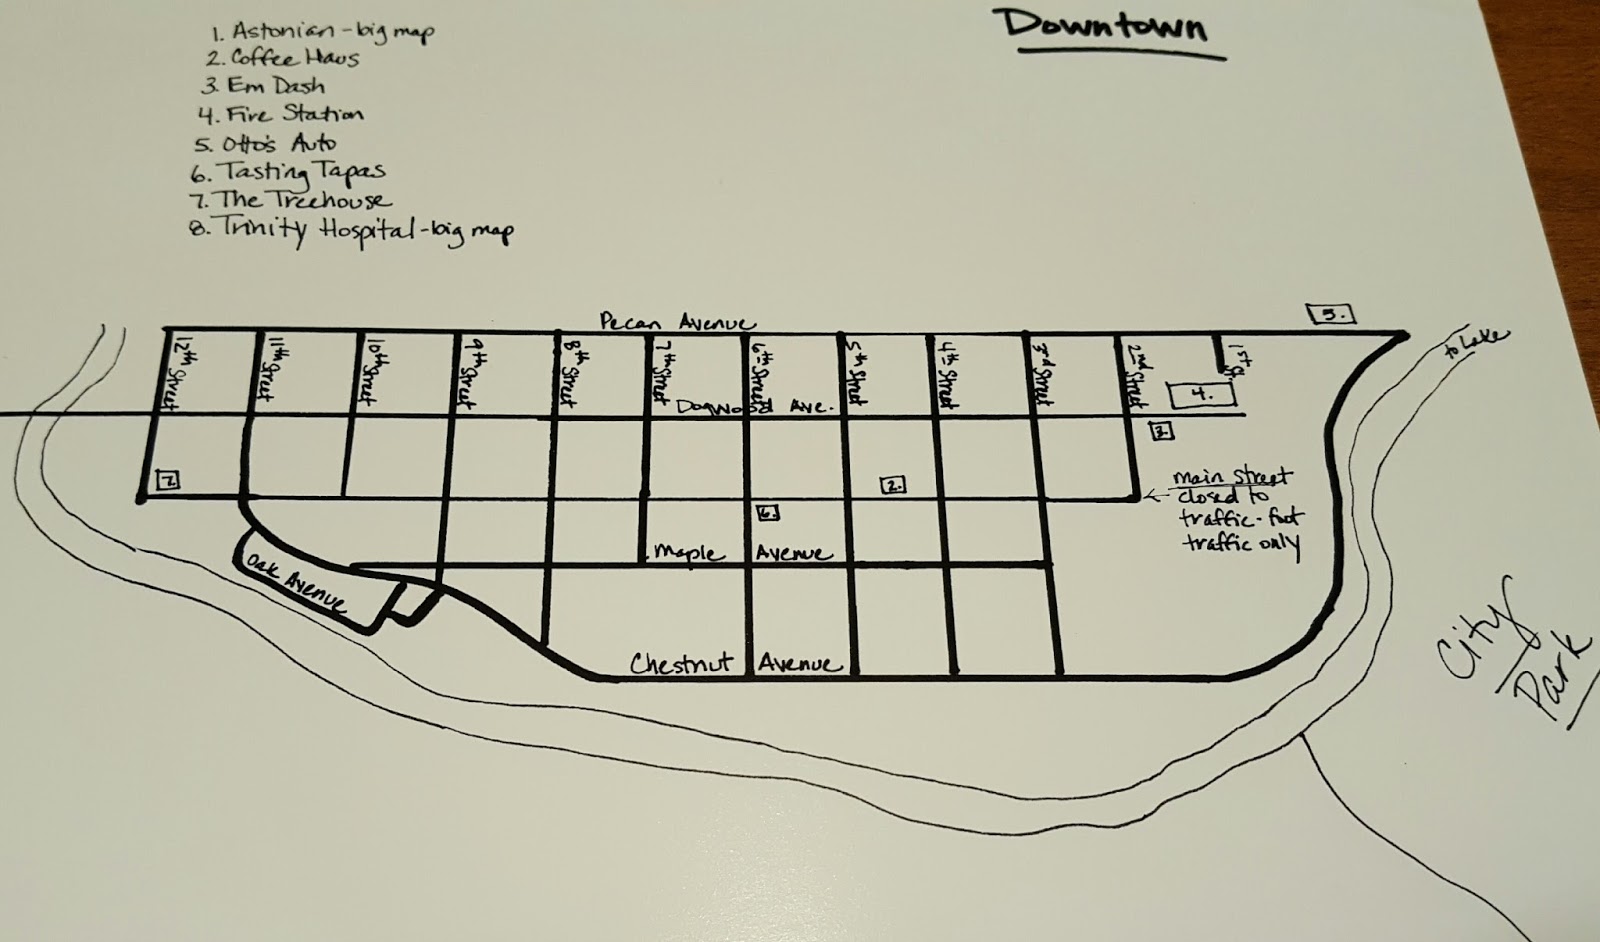 Downtown
1. Astonian - big map
2. Coffee Haus
3. Em Dash
4. Fire Station
5. Otto's Auto
6. Tasting Tapas
7. The Treehouse
8. Trinity Hospital - big map
Pecan Avenue
5.
to Lake
12th Street
11th Street
10th Street
9th Street
8th Street
7th Street
6th Street
5th Street
4th Street
3rd Street
2nd Street
1st St.
4.
Dogwood Ave.
3.
7.
2.
main Street
closed to
traffic - foot
traffic only
6.
Maple Avenue
Oak Avenue
Chestnut Avenue
City
Park